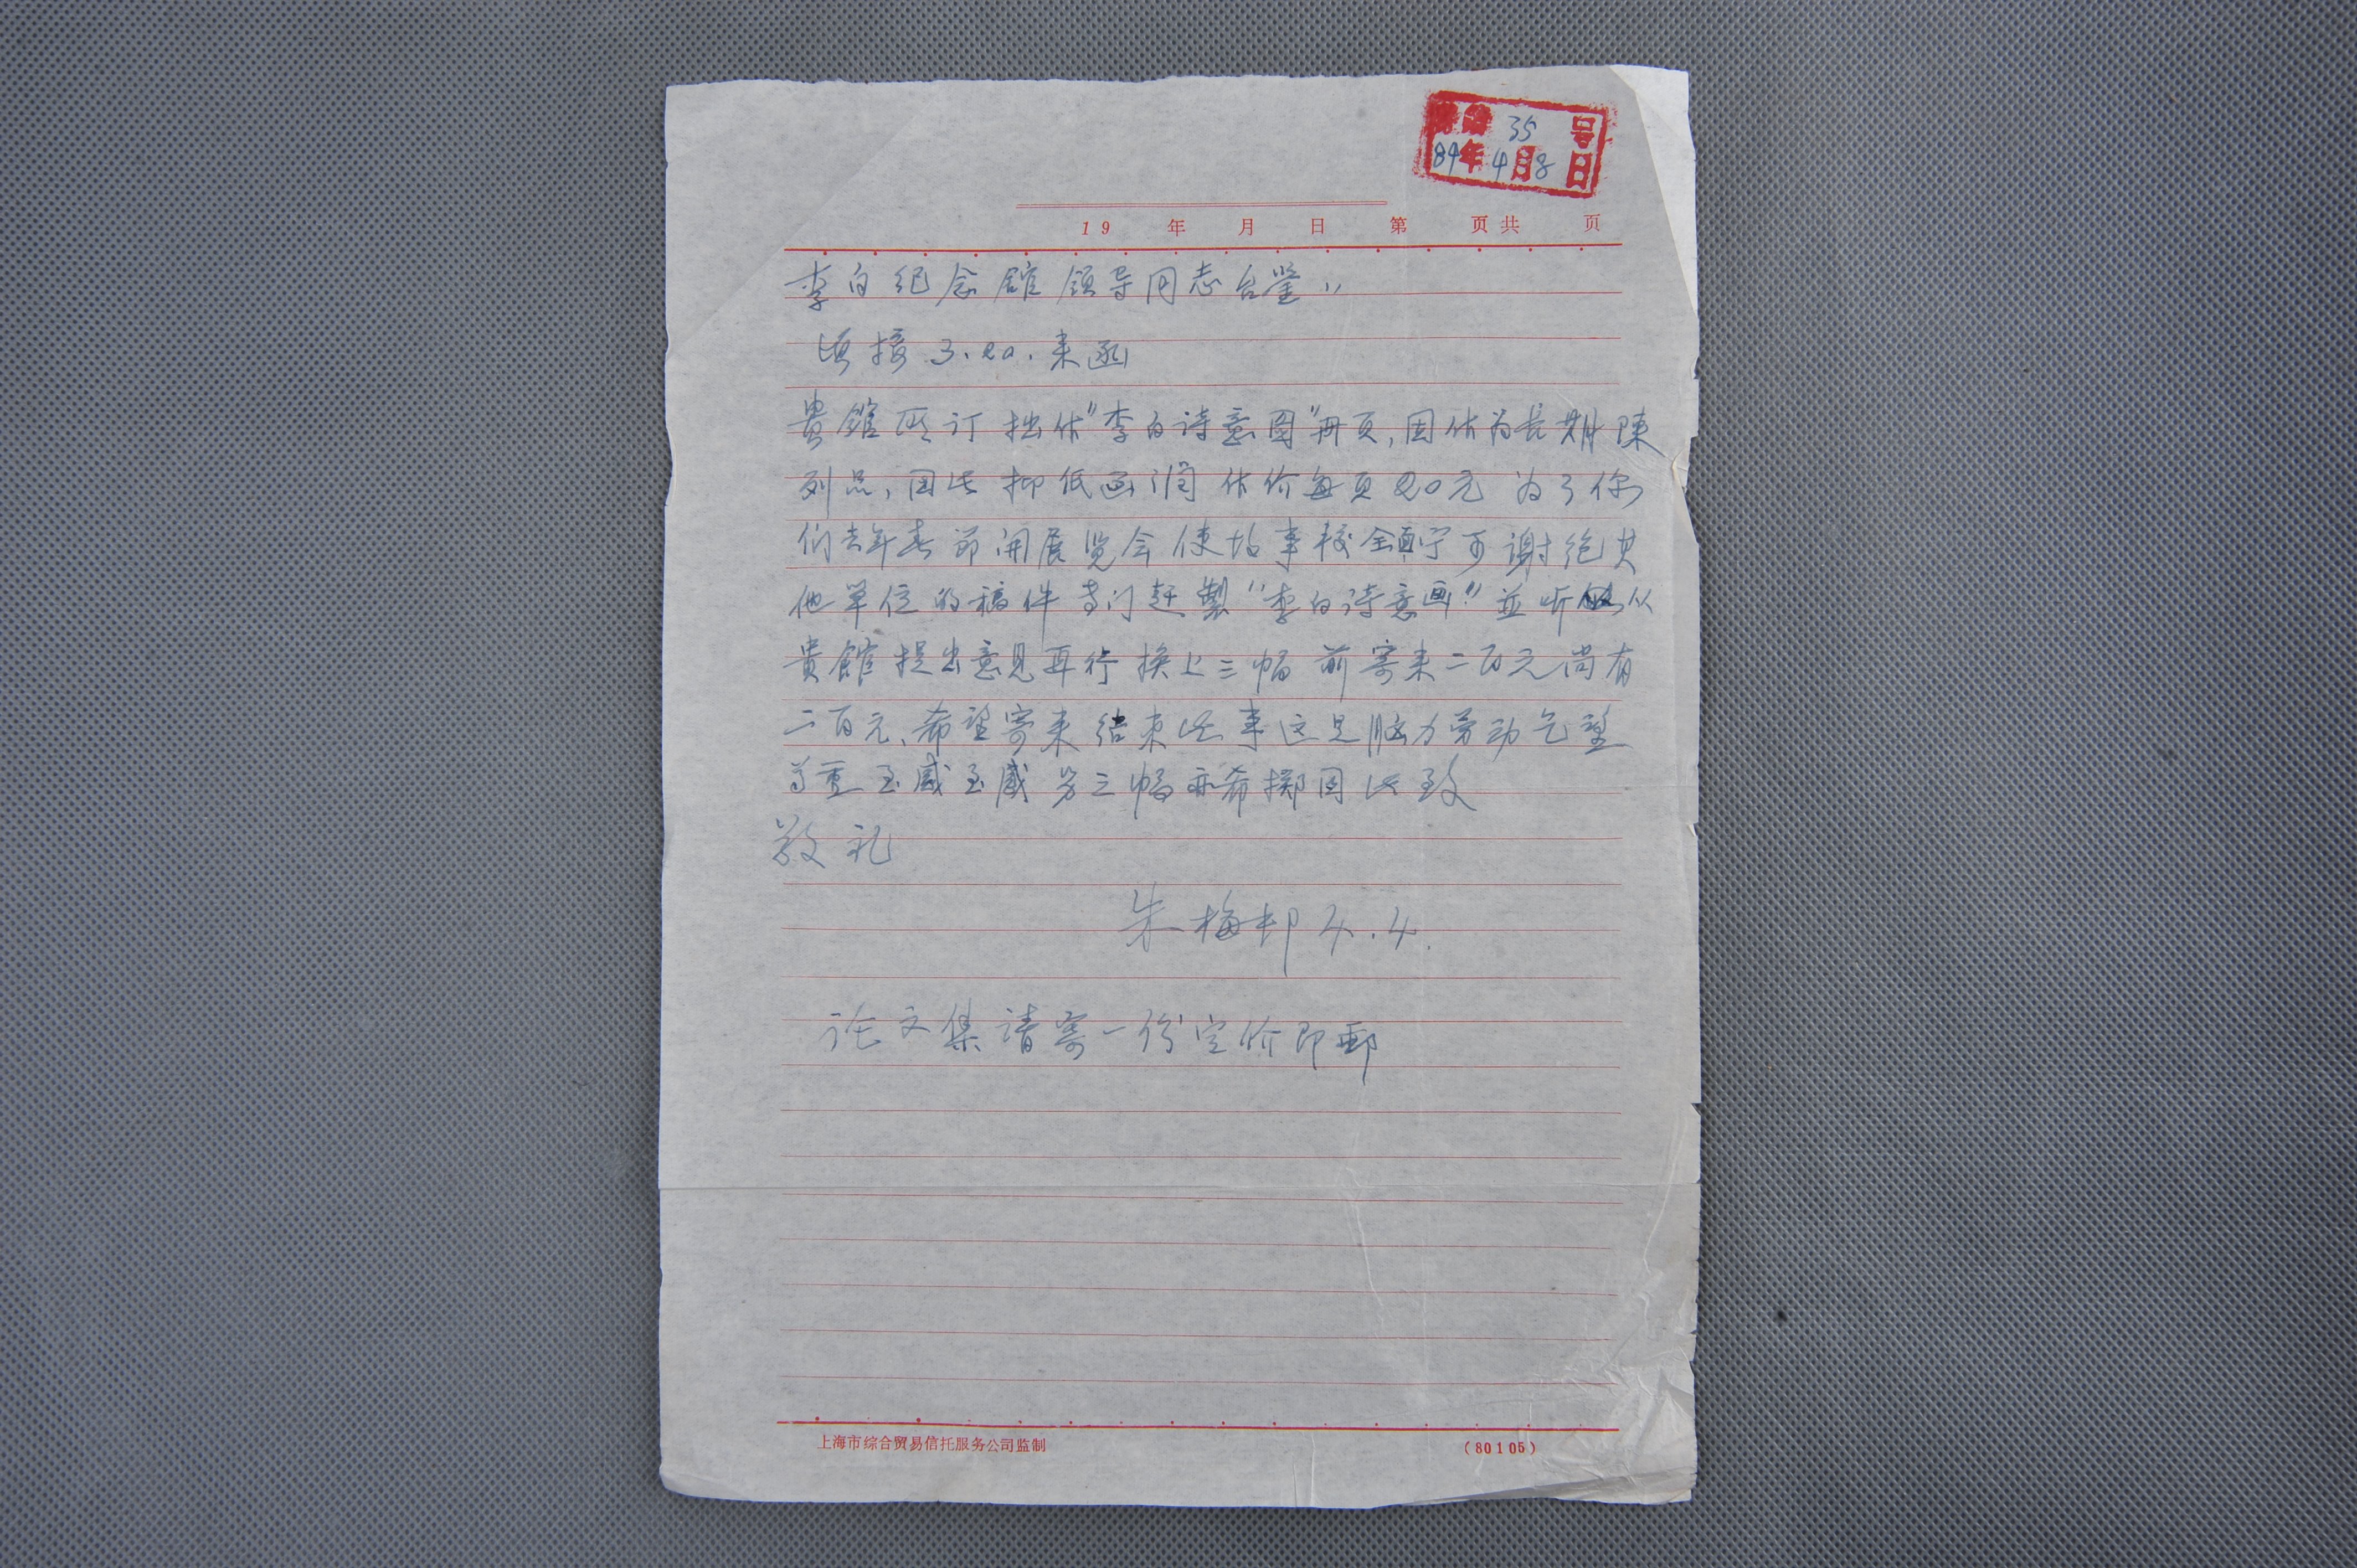 35 号
84年4月8日
19 年 月 日 第 页共 页
李白纪念馆领导同志台鉴:
顷接3.20.来函
贵馆所订拙作"李白诗意图"册页,因作为长期陈
列品,因此抑低画润作价每页20元 为了你
们去年春节开展览会使故事较全面宁可谢绝其
他单位的稿件专门赶製"李白诗意画"並听从
贵館提出意见再行换上三幅 前寄来二百元尚有
二百元、希望寄来结束此事这是脑力劳动乞望
尊重至感至感 另三幅亦希掷回此致
敬礼
朱梅邨 4.4.
论文集请寄一份定价即邮
上海市综合贸易信托服务公司监制 (80105)